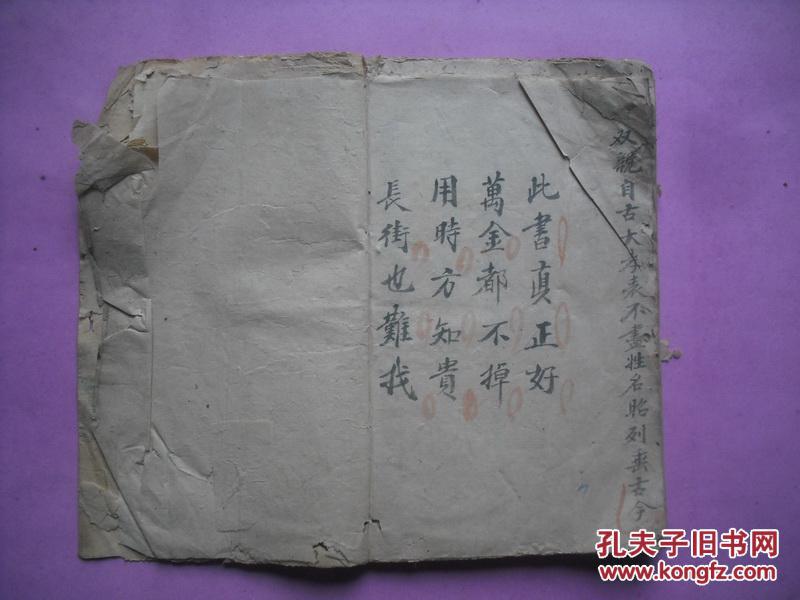 双親自古大孝表不盡姓名昭列垂古今
此書真正好
萬金都不掉
用時方知貴
長街也難找
孔夫子旧书网
www.kongfz.com